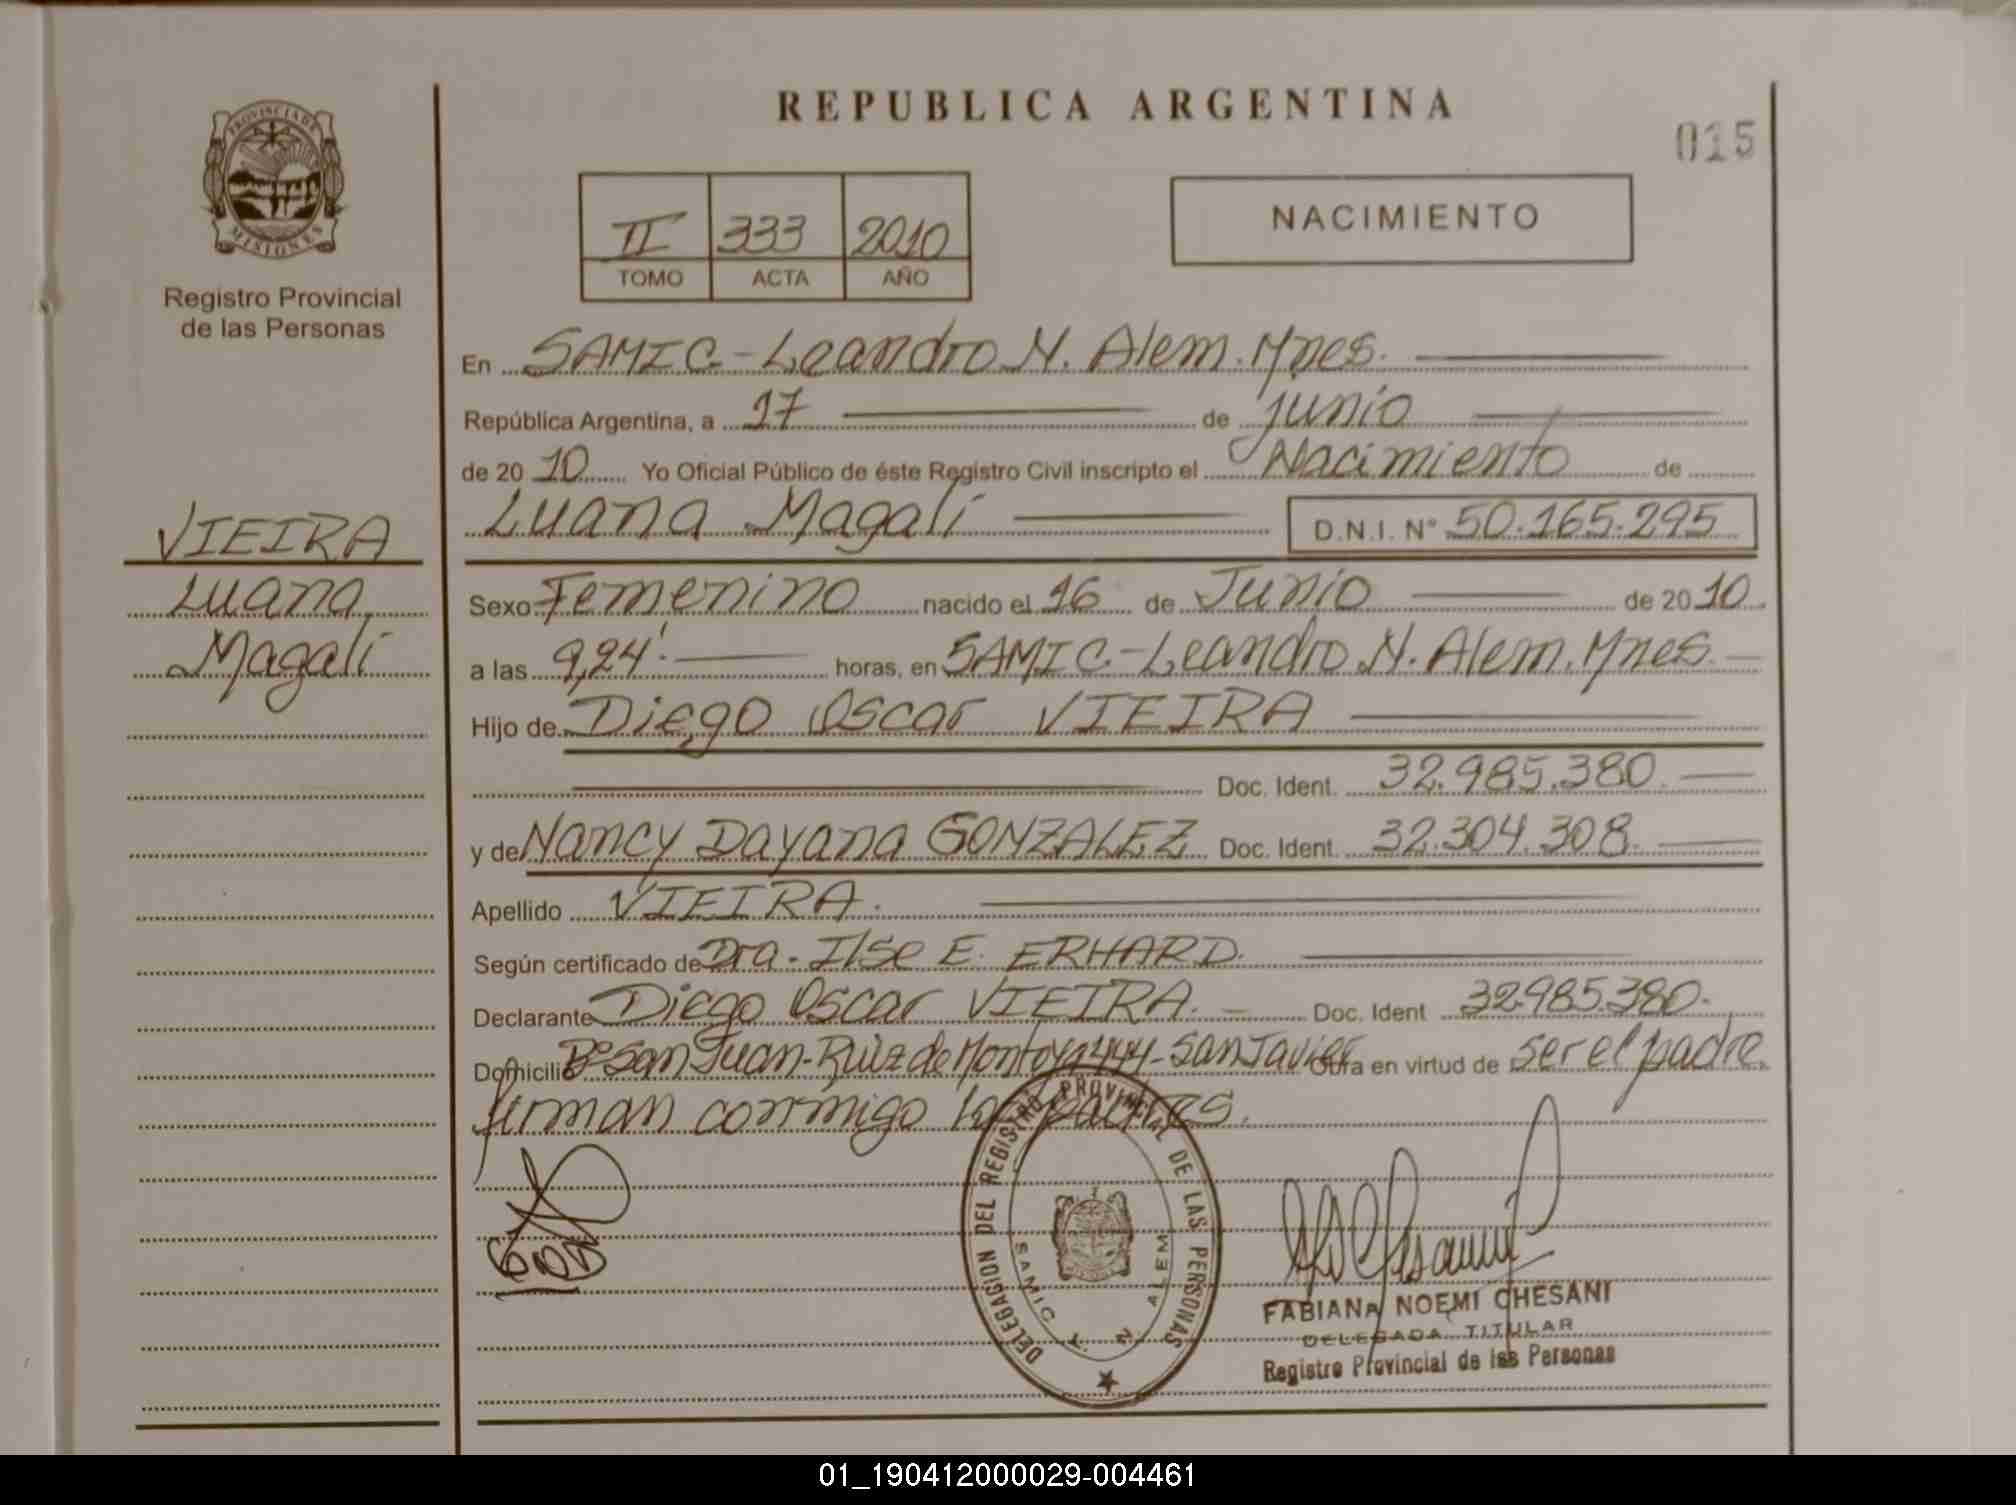 REPUBLICA ARGENTINA
015
PROVINCIA DE
MISIONES
Registro Provincial
de las Personas
II 333 2010
TOMO ACTA AÑO
NACIMIENTO
En SAMIC - Leandro N. Alem. Mnes.
República Argentina, a 17 de junio
de 20 10 Yo Oficial Público de éste Registro Civil inscripto el Nacimiento de
Luana Magalí D.N.I. Nº 50.165.295
VIEIRA
Luana
Magalí
Sexo Femenino nacido el 16 de Junio de 20 10
a las 9,24' horas, en SAMIC - Leandro N. Alem. Mnes.
Hijo de Diego Oscar VIEIRA
Doc. Ident. 32.985.380
y de Nancy Dayana GONZALEZ Doc. Ident. 32.304.308
Apellido VIEIRA.
Según certificado de Dra. Ilse E. ERHARD.
Declarante Diego Oscar VIEIRA. Doc. Ident 32.985.380.
Domicilio Bº San Juan - Ruiz de Montoya 444 - San Javier Obra en virtud de ser el padre
firman conmigo los padres.
DELEGACION DEL REGISTRO PROVINCIAL DE LAS PERSONAS
SAMIC L. N. ALEM
FABIANA NOEMI CHESANI
DELEGADA TITULAR
Registro Provincial de las Personas
01_190412000029-004461